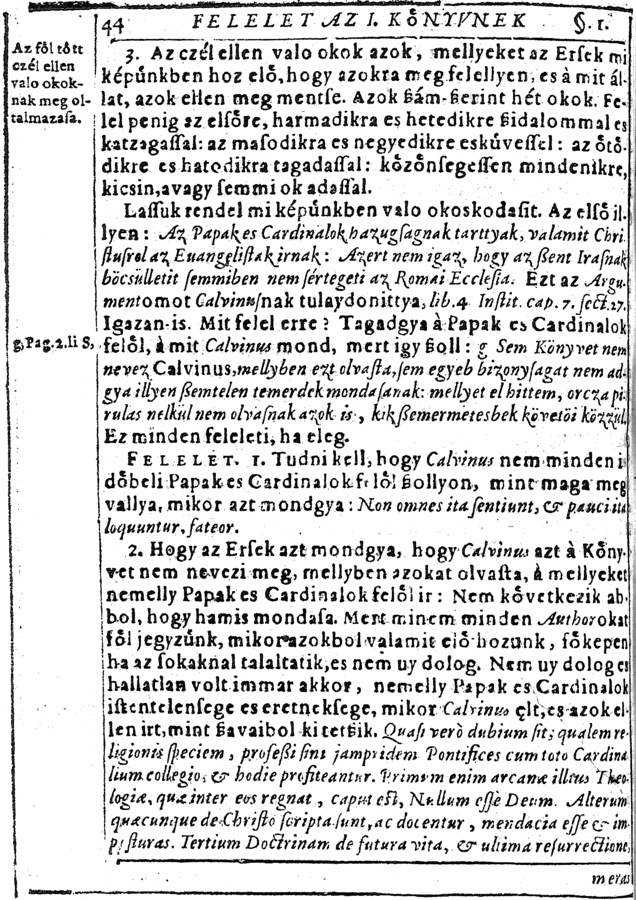 44 FELELET AZ I. KőNYVNEK §. 1.
Az föl tött
czél ellen
valo okok-
nak meg ol-
talmazaſa.
3. Az czél ellen valo okok azok, mellyeket az Erſek mi
képúnkben hoz elő, hogy azokra megfelellyen, es à mit ál-
lat, azok ellen meg mentſe. Azok ßám-ßerint hét okok. Fe-
lel penig az elſőre, harmadikra es hetedikre ßidalommal es
katzagaſſal: az maſodikra es negyedikre eskúveſſel: az ötö-
dikre es hatodikra tagadaſſal: közönſegeſſen mindenikre,
kicsin, avagy ſemmi ok adaſſal.
Laſſuk rendel mi képúnkben valo okoskodaſit. Az elſő il-
lyen: Az Papak es Cardinalok hazugſagnak tarttyak, valamit Chri
ſtuſrol az Euangeliſtak irnak: Azert nem igaz, hogy az ßent Iraſnak
böcsülletit ſemmiben nem ſértegeti az Romai Eccleſia. Ezt az Argu-
mentomot Calvinuſnak tulaydonittya, lib. 4 Inſtit. cap. 7. ſect. 27.
Igazan-is. Mit felel erre? Tagadgya à Papak es Cardinalok
g, Pag. 2. li S,
felől, à mit Calvinus mond, mert igy ßoll: g Sem Könyvet nem
nevez Calvinus, mellyben ezt olvaſta, ſem egyeb bizonyſagat nem ad-
gya illyen ßemtelen temerdek mondaſanak: mellyet el hittem, orcza pi-
rulas nelkúl nem olvaſnak azok is, kik ßemermetesbek követöi közzúl.
Ez minden feleleti, ha eleg.
FELELET. 1. Tudni kell, hogy Calvinus nem minden i-
döbeli Papak es Cardinalok felől ßollyon, mint maga meg
vallya, mikor azt mondgya: Non omnes ita ſentiunt, & pauci ita
loquuntur, fateor.
2. Hogy az Erſek azt mondgya, hogy Calvinus azt à Köny-
vet nem nevezi meg, mellyben azokat olvaſta, à mellyeket
nemelly Papak es Cardinalok felől ir: Nem következik ab-
bol, hogy hamis mondaſa. Mert minem minden Authorokat
föl jegyzúnk, mikor azokbol valamit elő hozunk, főkepen
ha az ſokaknal talaltatik, es nem uy dolog. Nem uy dolog es
hallatlan volt immar akkor, nemelly Papak es Cardinalok
iſtentelenſege es eretnekſege, mikor Calvinus élt, es azok el-
len irt, mint ßavaibol ki tetßik. Quaſi verò dubium ſit, qualem re-
ligionis ſpeciem, profeßi ſint jampridem Pontifices cum toto Cardina
lium collegio, & hodie profiteantur. Primum enim arcanæ illius Theo-
logiæ, quæ inter eos regnat, caput eſt, Nullum eſſe Deum. Alterum
quæcunque de Chriſto ſcripta ſunt, ac docentur, mendacia eſſe & im-
poſturas. Tertium Doctrinam de futura vita, & ultima reſurrectione,
meras